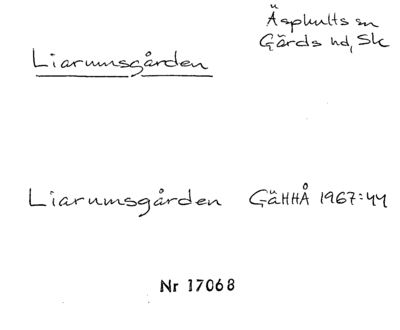 Äsphults sn
Gärds hd, Sk
Liarumsgården
Liarumsgården GäHHÅ 1967:44
Nr 17068